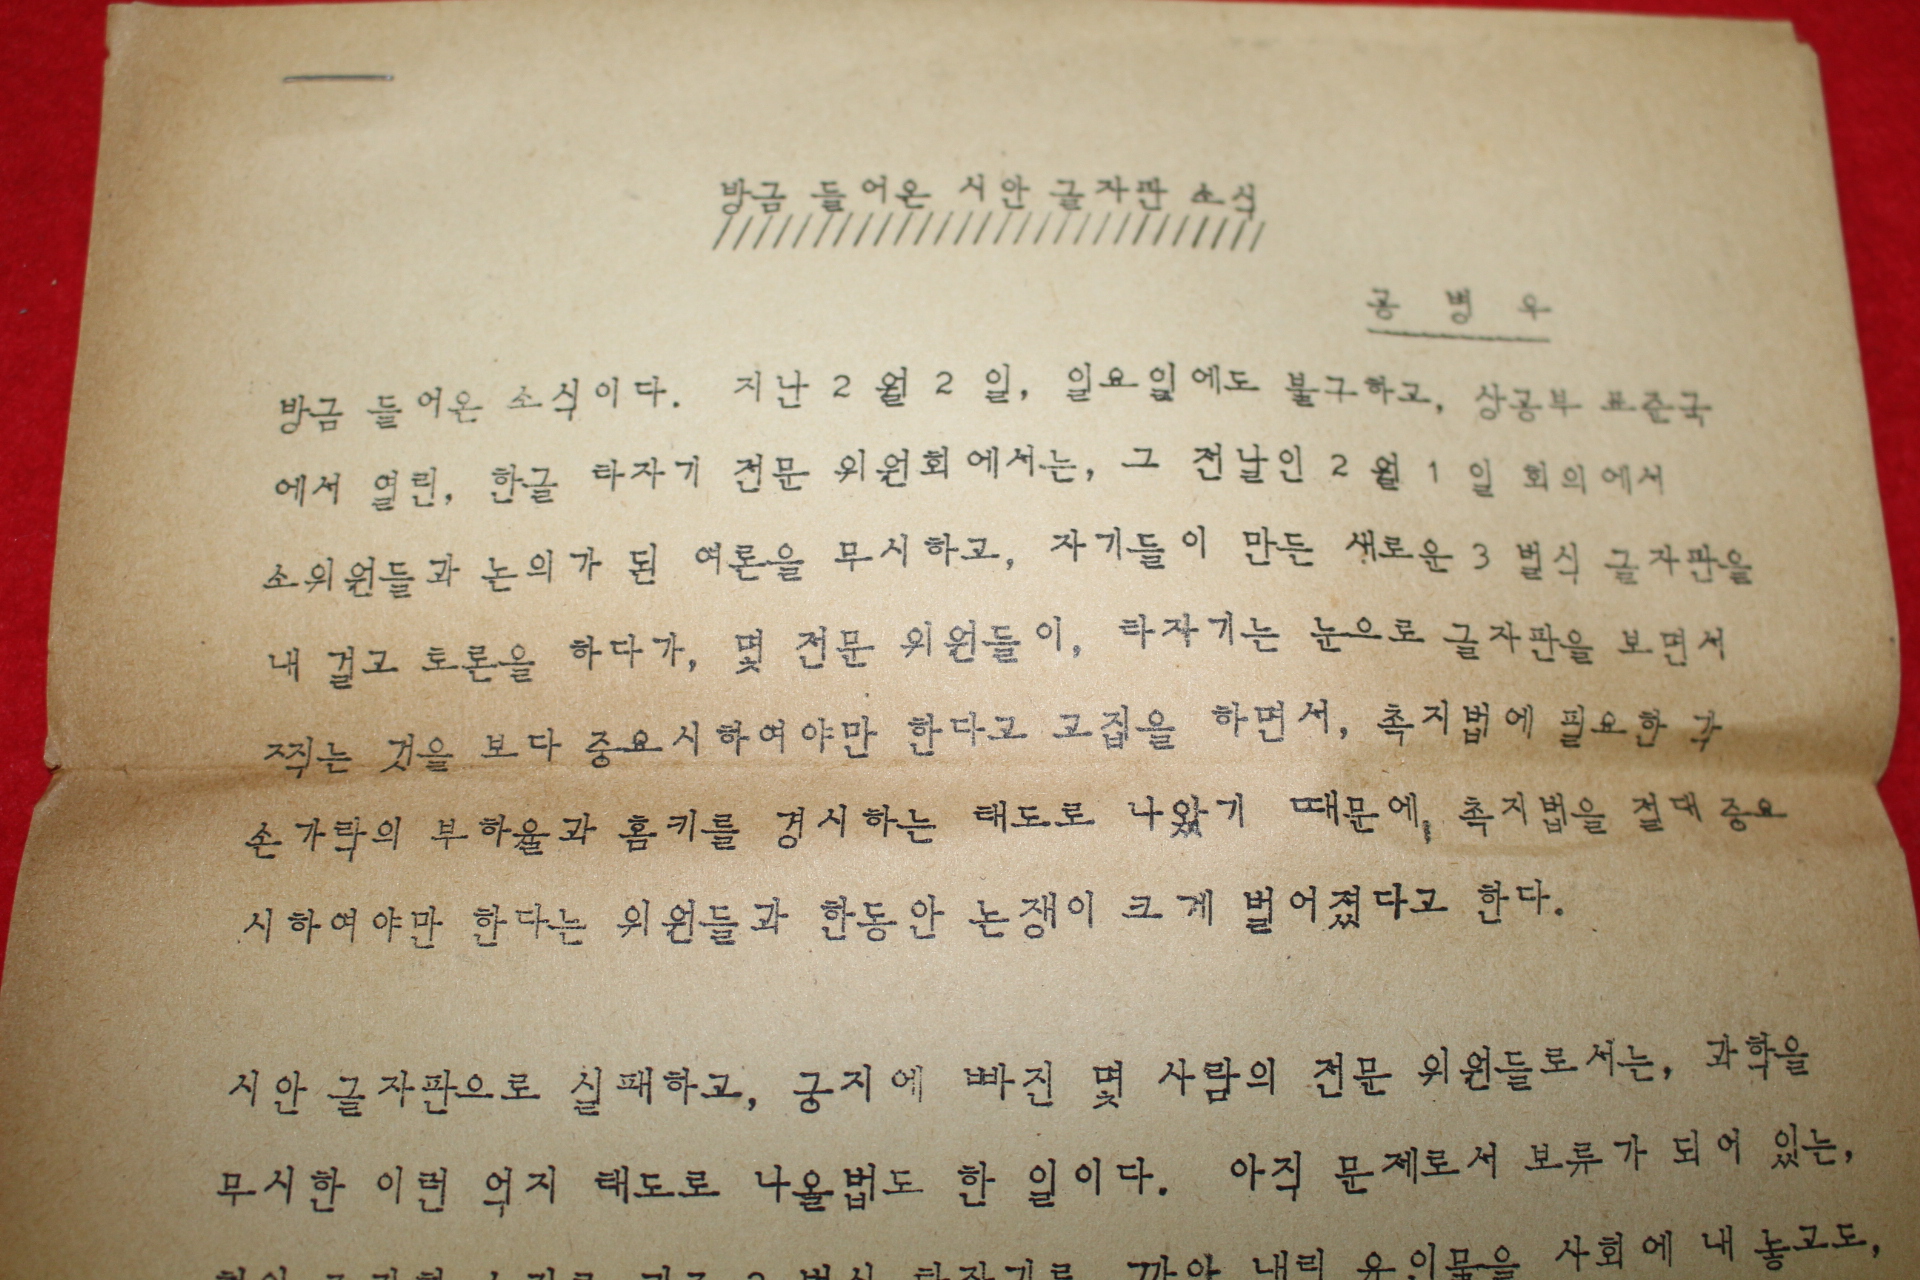 방금 들어온 시안 글자판 소식
//////////////////////////////
공 병 우
방금 들어온 소식이다. 지난 2월 2일, 일요일에도 불구하고, 상공부 표준국
에서 열린, 한글 타자기 전문 위원회에서는, 그 전날인 2월 1일 회의에서
소위원들과 논의가 된 여론을 무시하고, 자기들이 만든 새로운 3벌식 글자판을
내 걸고 토론을 하다가, 몇 전문 위원들이, 타자기는 눈으로 글자판을 보면서
찍는 것을 보다 중요시하여야만 한다고 고집을 하면서, 촉지법에 필요한 각
손가락의 부하율과 홈키를 경시하는 태도로 나왔기 때문에, 촉지법을 절대 중요
시하여야만 한다는 위원들과 한동안 논쟁이 크게 벌어졌다고 한다.
시안 글자판으로 실패하고, 궁지에 빠진 몇 사람의 전문 위원들로서는, 과학을
무시한 이런 억지 태도로 나올법도 한 일이다. 아직 문제로서 보류가 되어 있는,
벌식 타자기로 까아 내린 유인물을 사회에 내 놓고도,